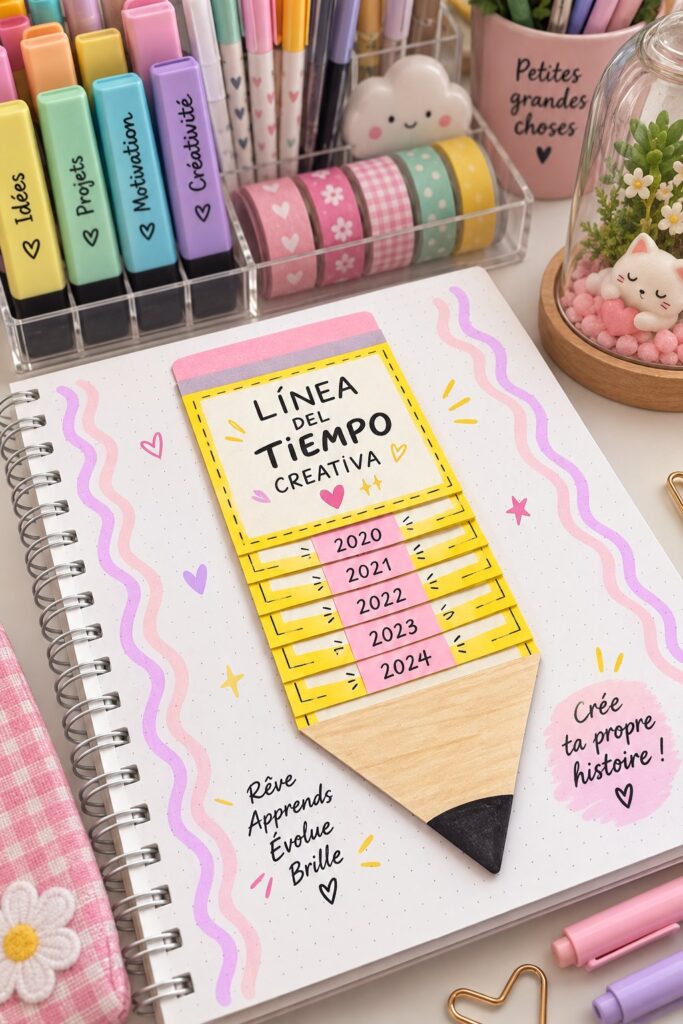 Idées
Projets
Motivation
Créativité
Petites
grandes
choses
LÍNEA
DEL
TiEMPO
CREATIVA
2020
2021
2022
2023
2024
Rêve
Apprends
Évolue
Brille
Crée
ta propre
histoire !